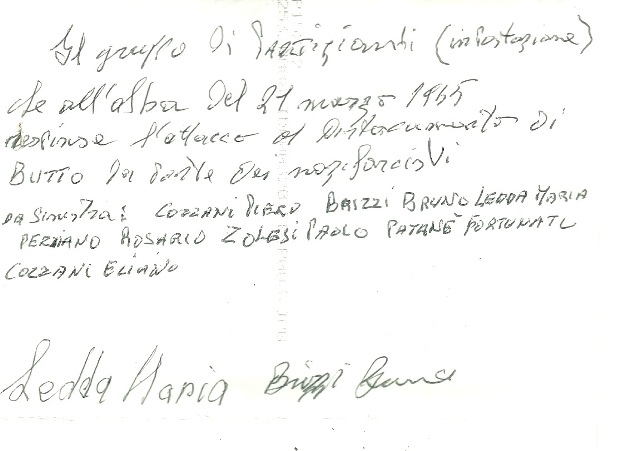 Il gruppo di Partigiani (in postazione)
che all'alba del 21 marzo 1945
respinse l'attacco al Distaccamento di
BUTTO da parte dei nazifascisti
DA SINISTRA: COZZANI PIERO BRIZZI BRUNO LEDDA MARIA
ROSARIO ZOLESI PAOLO PATANÈ FORTUNATO
COZZANI ELIANO
Ledda Maria Brizzi Bruno